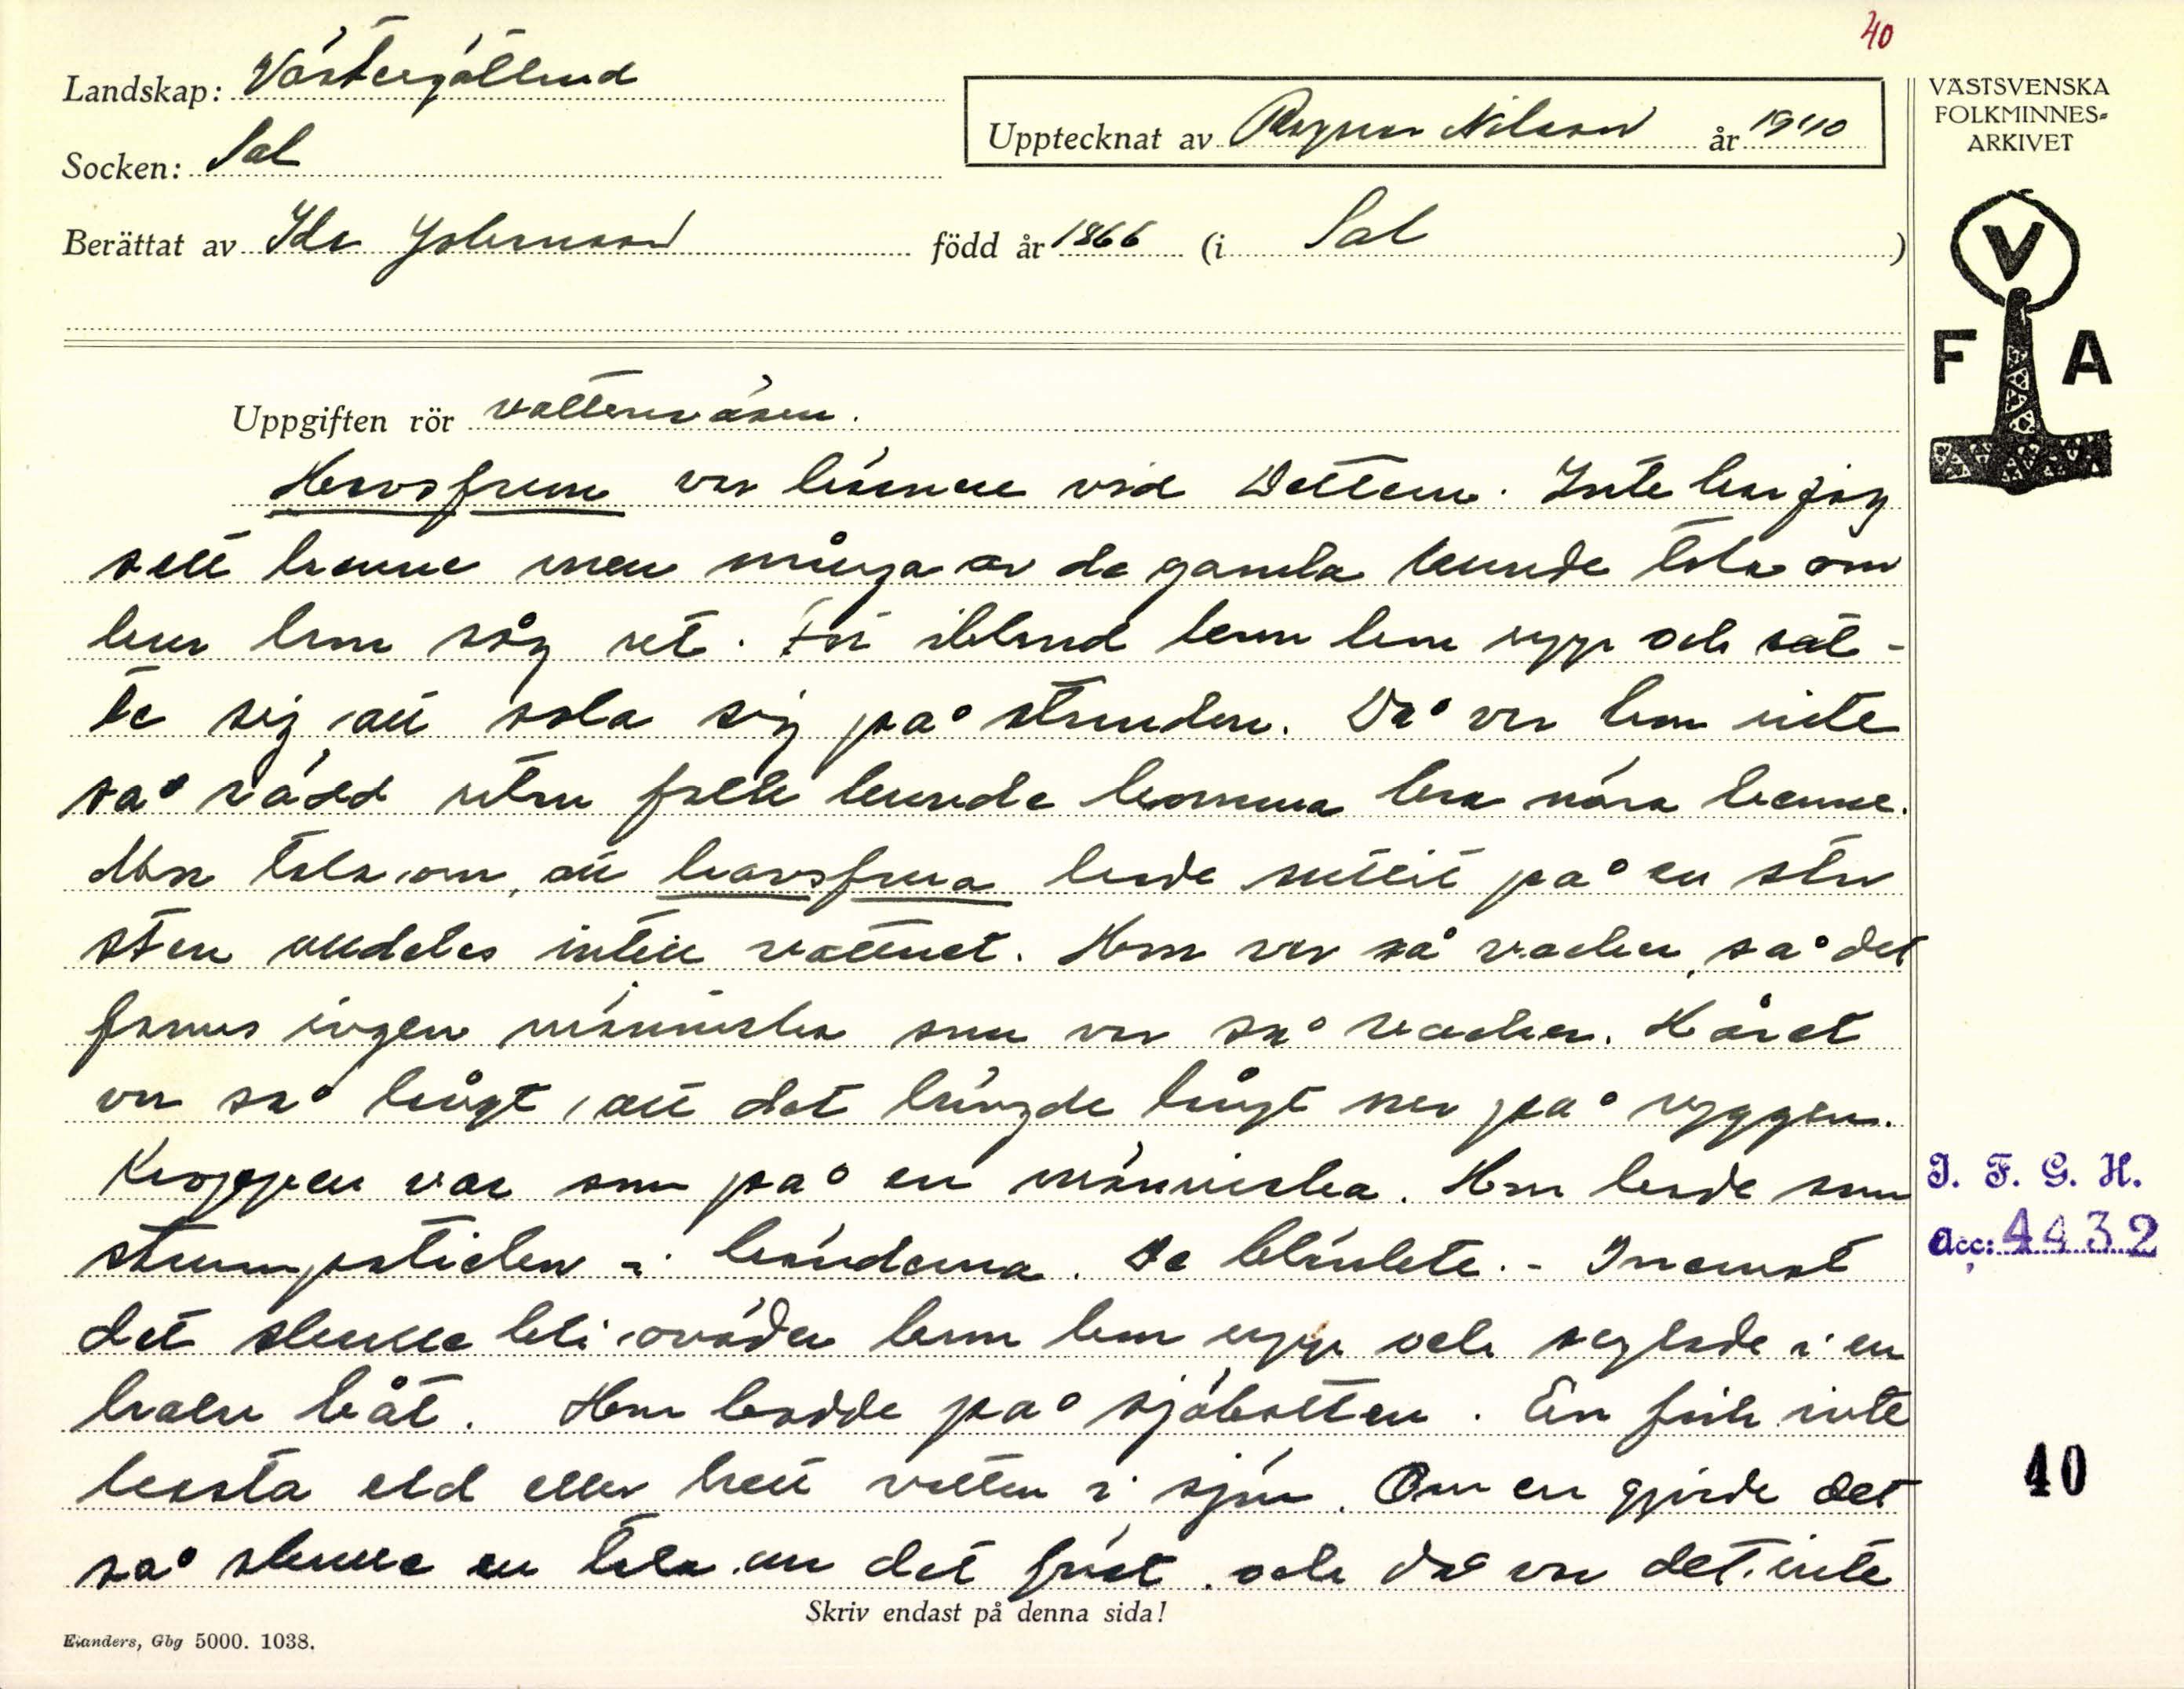 40
Landskap: Västergötland
Socken: Sal
Upptecknat av Ragnar Nilsson år 1940
Berättat av Ida Johansson född år 1866 (i Sal )
VÄSTSVENSKA
FOLKMINNES-
ARKIVET
V
F A
Uppgiften rör vattenväsen.
Havsfrun var känne vid Dettern. Inte har jag
sett henne men många av de gamla kunde tala om
hur hon såg ut. För ibland kom hon upp och sat-
te sig att sola sig på stranden. Då var hon inte
så rädd utan folk kunde komma bra nära henne.
Mor tala om, att havsfrua hade suttit på en stor
sten alldeles intill vattnet. Hon var så vacker, så det
fanns ingen människa som var så vacker. Håret
var så långt, att det hängde långt ner på ryggen.
Kroppen var som på en människa. Hon hade som
strumpstickor i händerna. De blänkte. - Innnast
det skulle bli oväder kom hon upp och seglade i en
halv båt. Hon bodde på sjöbotten. En fick inte
kasta eld eller hett vatten i sjön. Om en gjorde det
så skulle en tala om det först och då var det inte
Skriv endast på denna sida!
Elanders, Gbg 5000. 1038.
I. F. G. H.
Acc: 4432
40